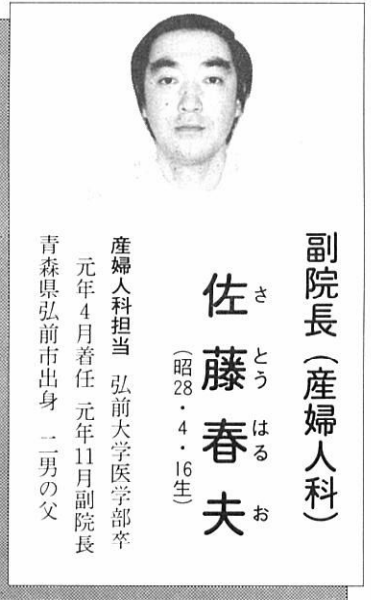 副院長（産婦人科）
佐藤春夫
さとうはるお
（昭28・4・16生）
産婦人科担当　弘前大学医学部卒
元年4月着任　元年11月副院長
青森県弘前市出身　二男の父